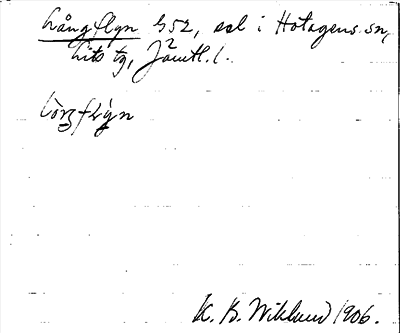 Långflyn 452, ssl i Hotagens sn,
Lits tg, Jämtl. l.
K. B. Wiklund 1906.